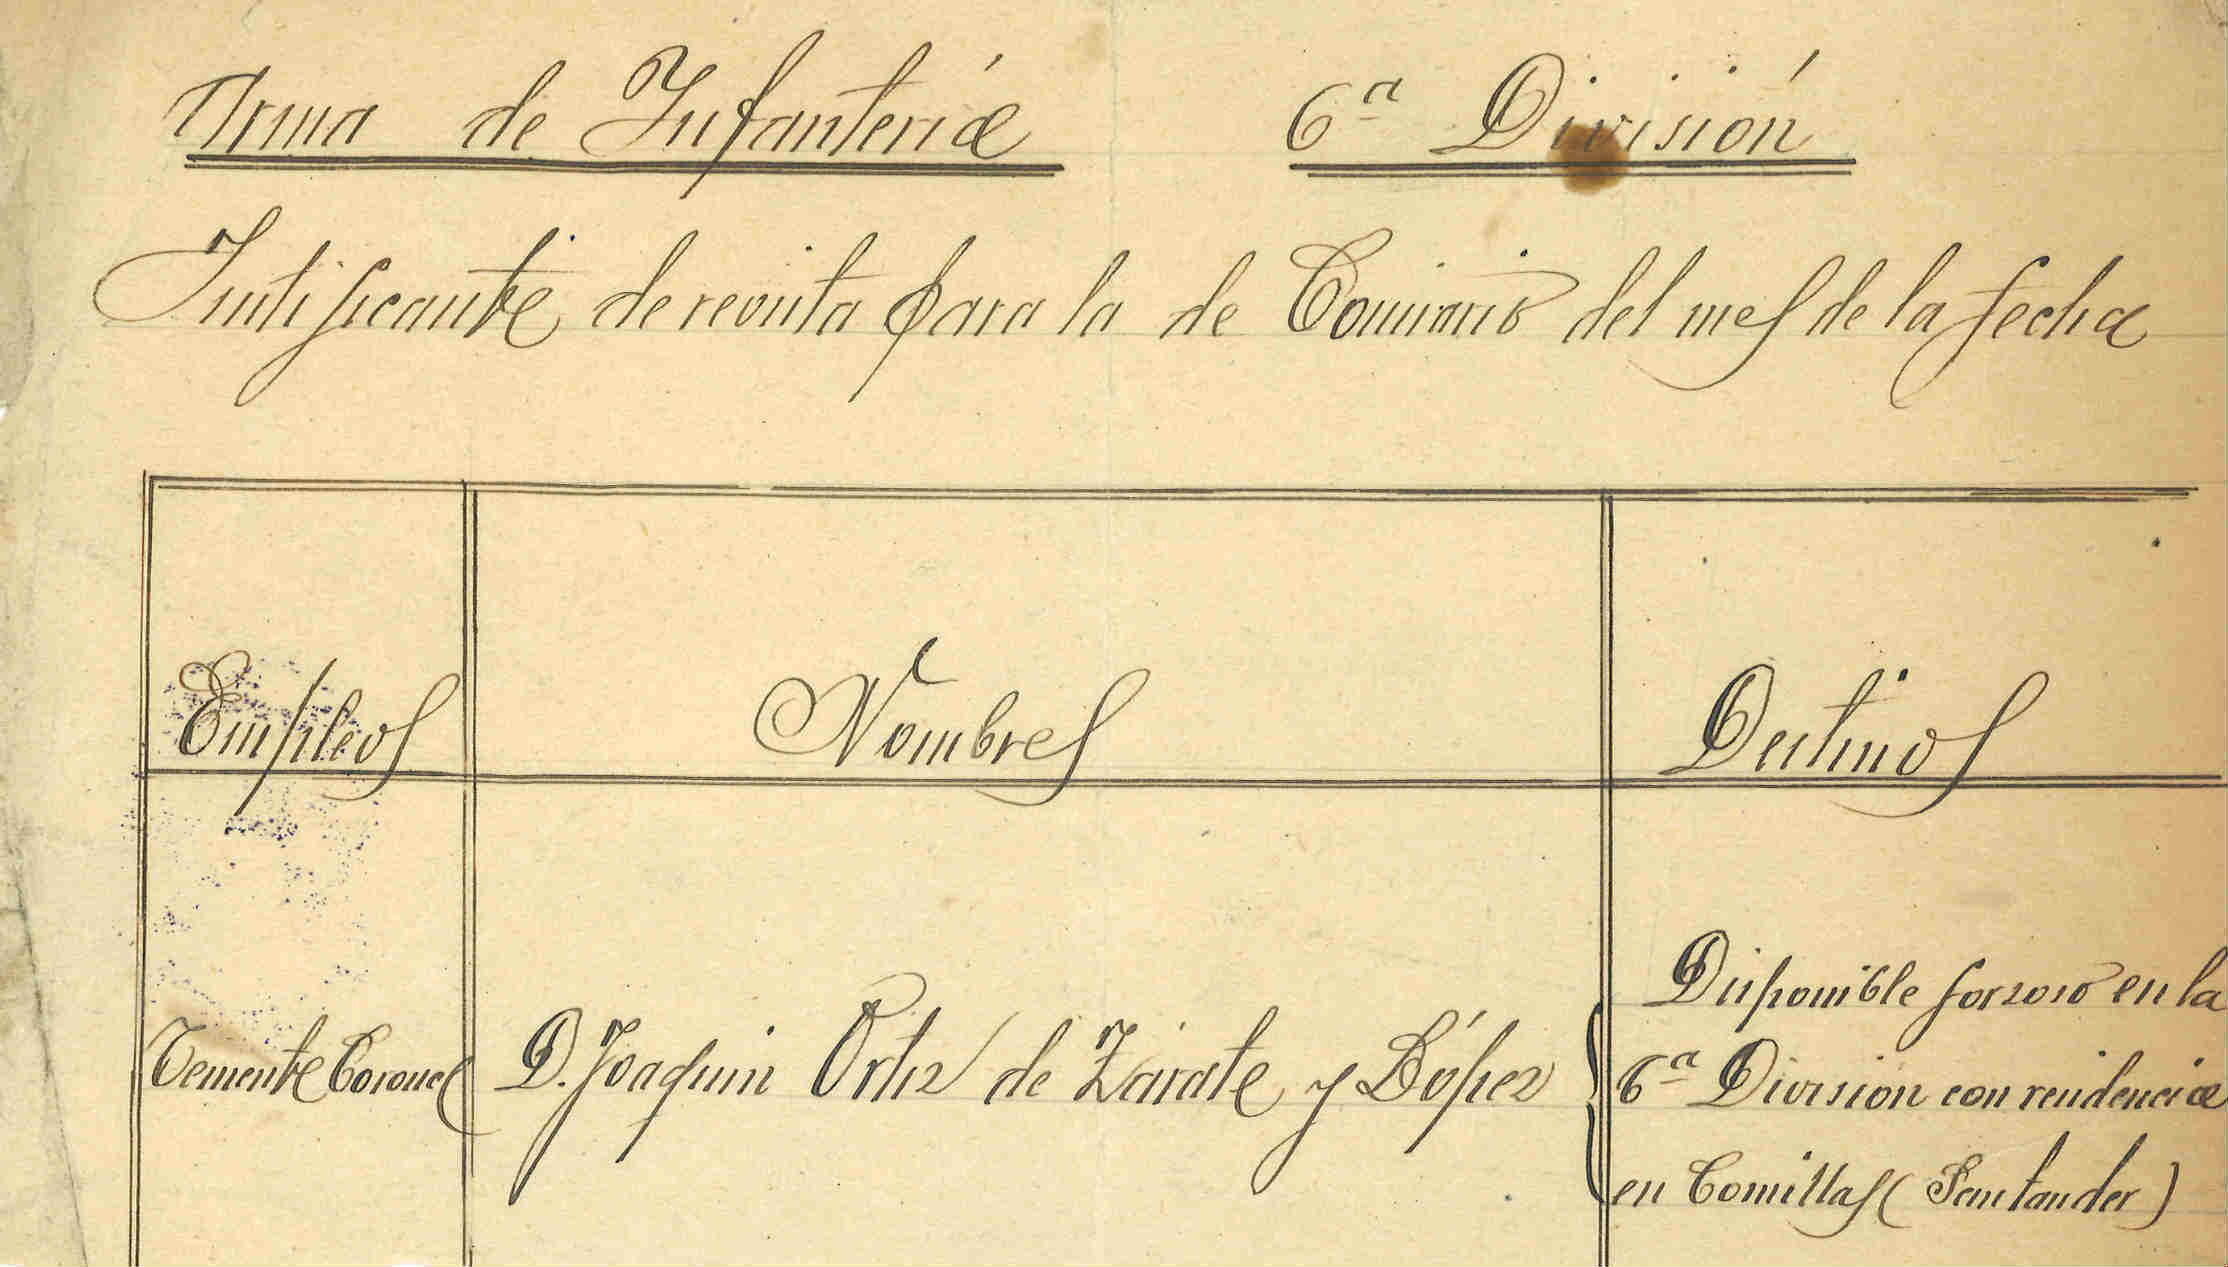 Arma de Infantería 6ª División
Justificante de revista para la de Comisario del mes de la fecha
Empleos Nombres Destinos
Teniente Coronel D. Joaquin Ortiz de Zárate y López
Disponible forzoso en la
6ª División con residencia
en Comillas (Santander)